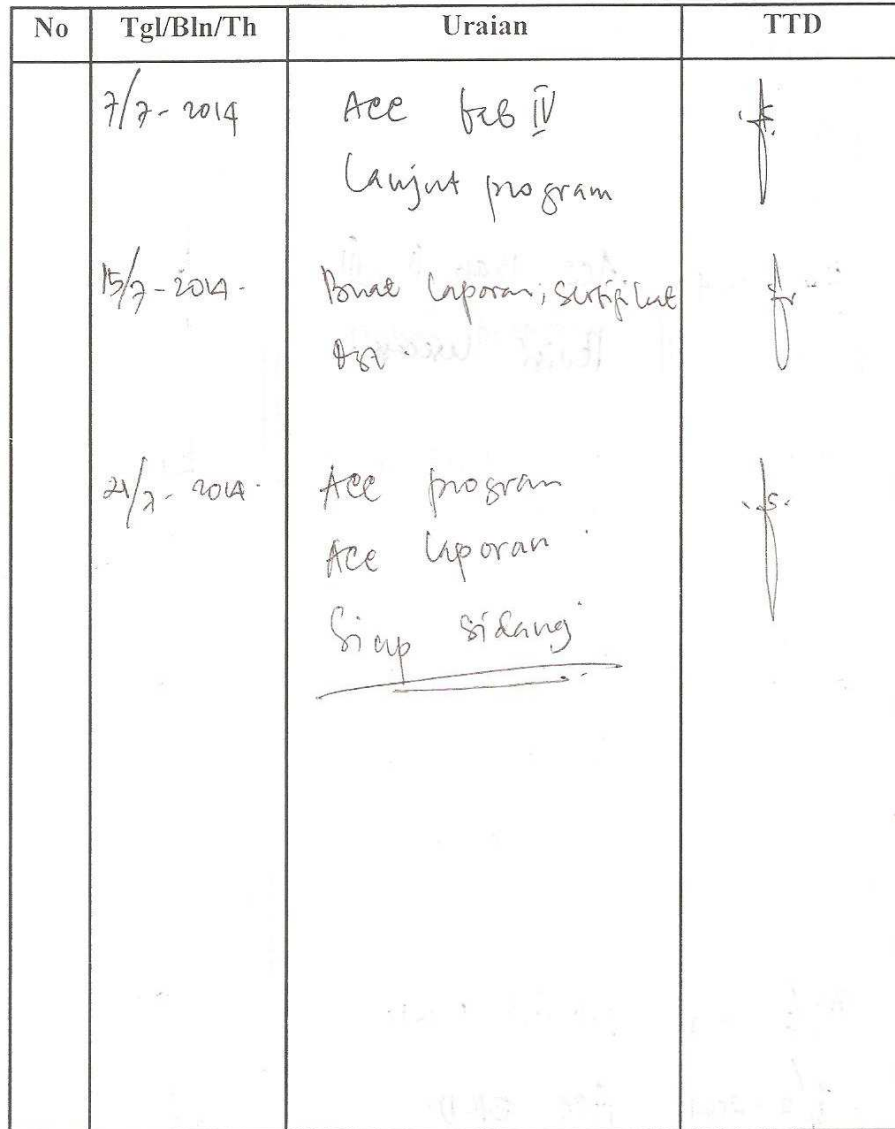 No Tgl/Bln/Th Uraian TTD
7/7- 2014 Acc bab IV
Lanjut program
15/7-2014- Buat laporan, sertifikat
21/7- 2014- Acc program
Acc laporan
Siap sidang